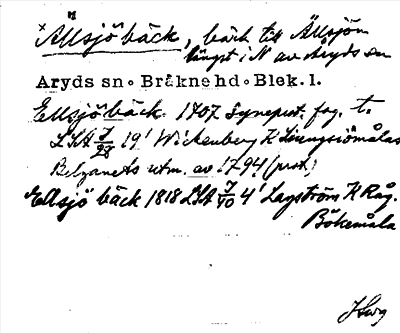 × Ällsjö bäck, bäck till Ällsjön
längst i N av Aryds sn
Aryds sn. Bräkne hd. Blek. l.
Ellsjö bäck 1707 Syneprot. fog. t.
LSA 7/28 19' Wickenberg K
Belganets utm. av 1794 (prot.)
Ellsjö bäck 1818 LSA 7/40 4' Lagström K Råg.
Bökemåla